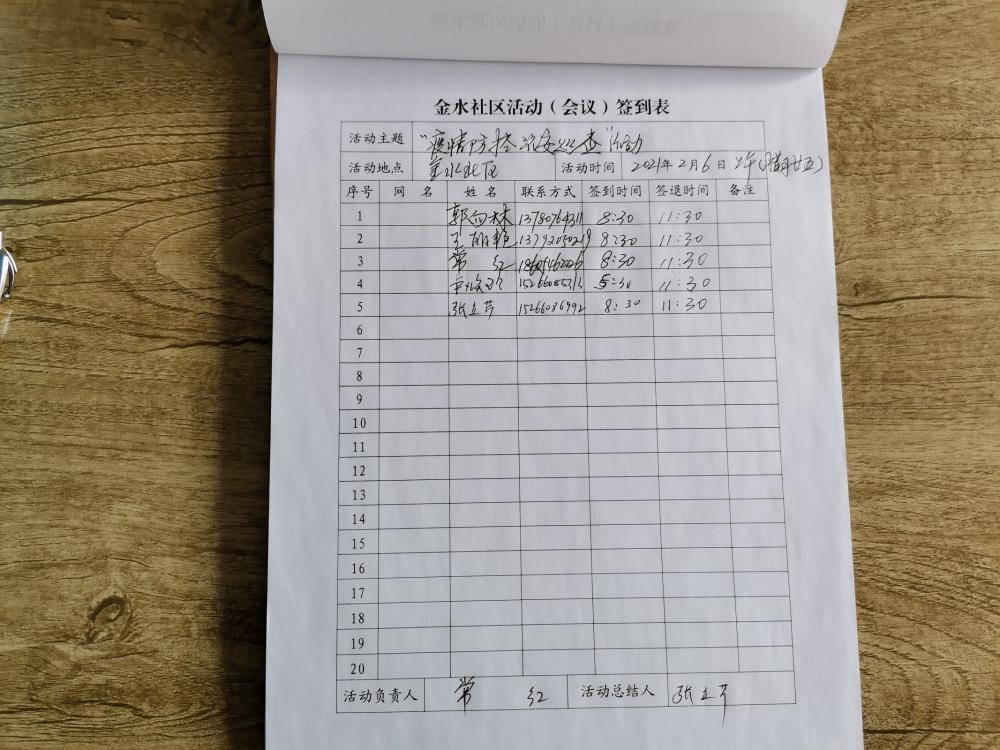 金水社区活动（会议）签到表
活动主题 "疫情防控 治安巡查"活动
活动地点 金水社区 活动时间 2021年2月6日上午(腊月廿五)
序号 网 名 姓 名 联系方式 签到时间 签退时间 备注
1 13780764311 8:30 11:30
2 13792050219 8:30 11:30
3 常 红 18605462226 8:30 11:30
4 8:30 11:30
5 张立芹 15266086992 8:30 11:30
6
7
8
9
10
11
12
13
14
15
16
17
18
19
20
活动负责人 常 红 活动总结人 张立芹